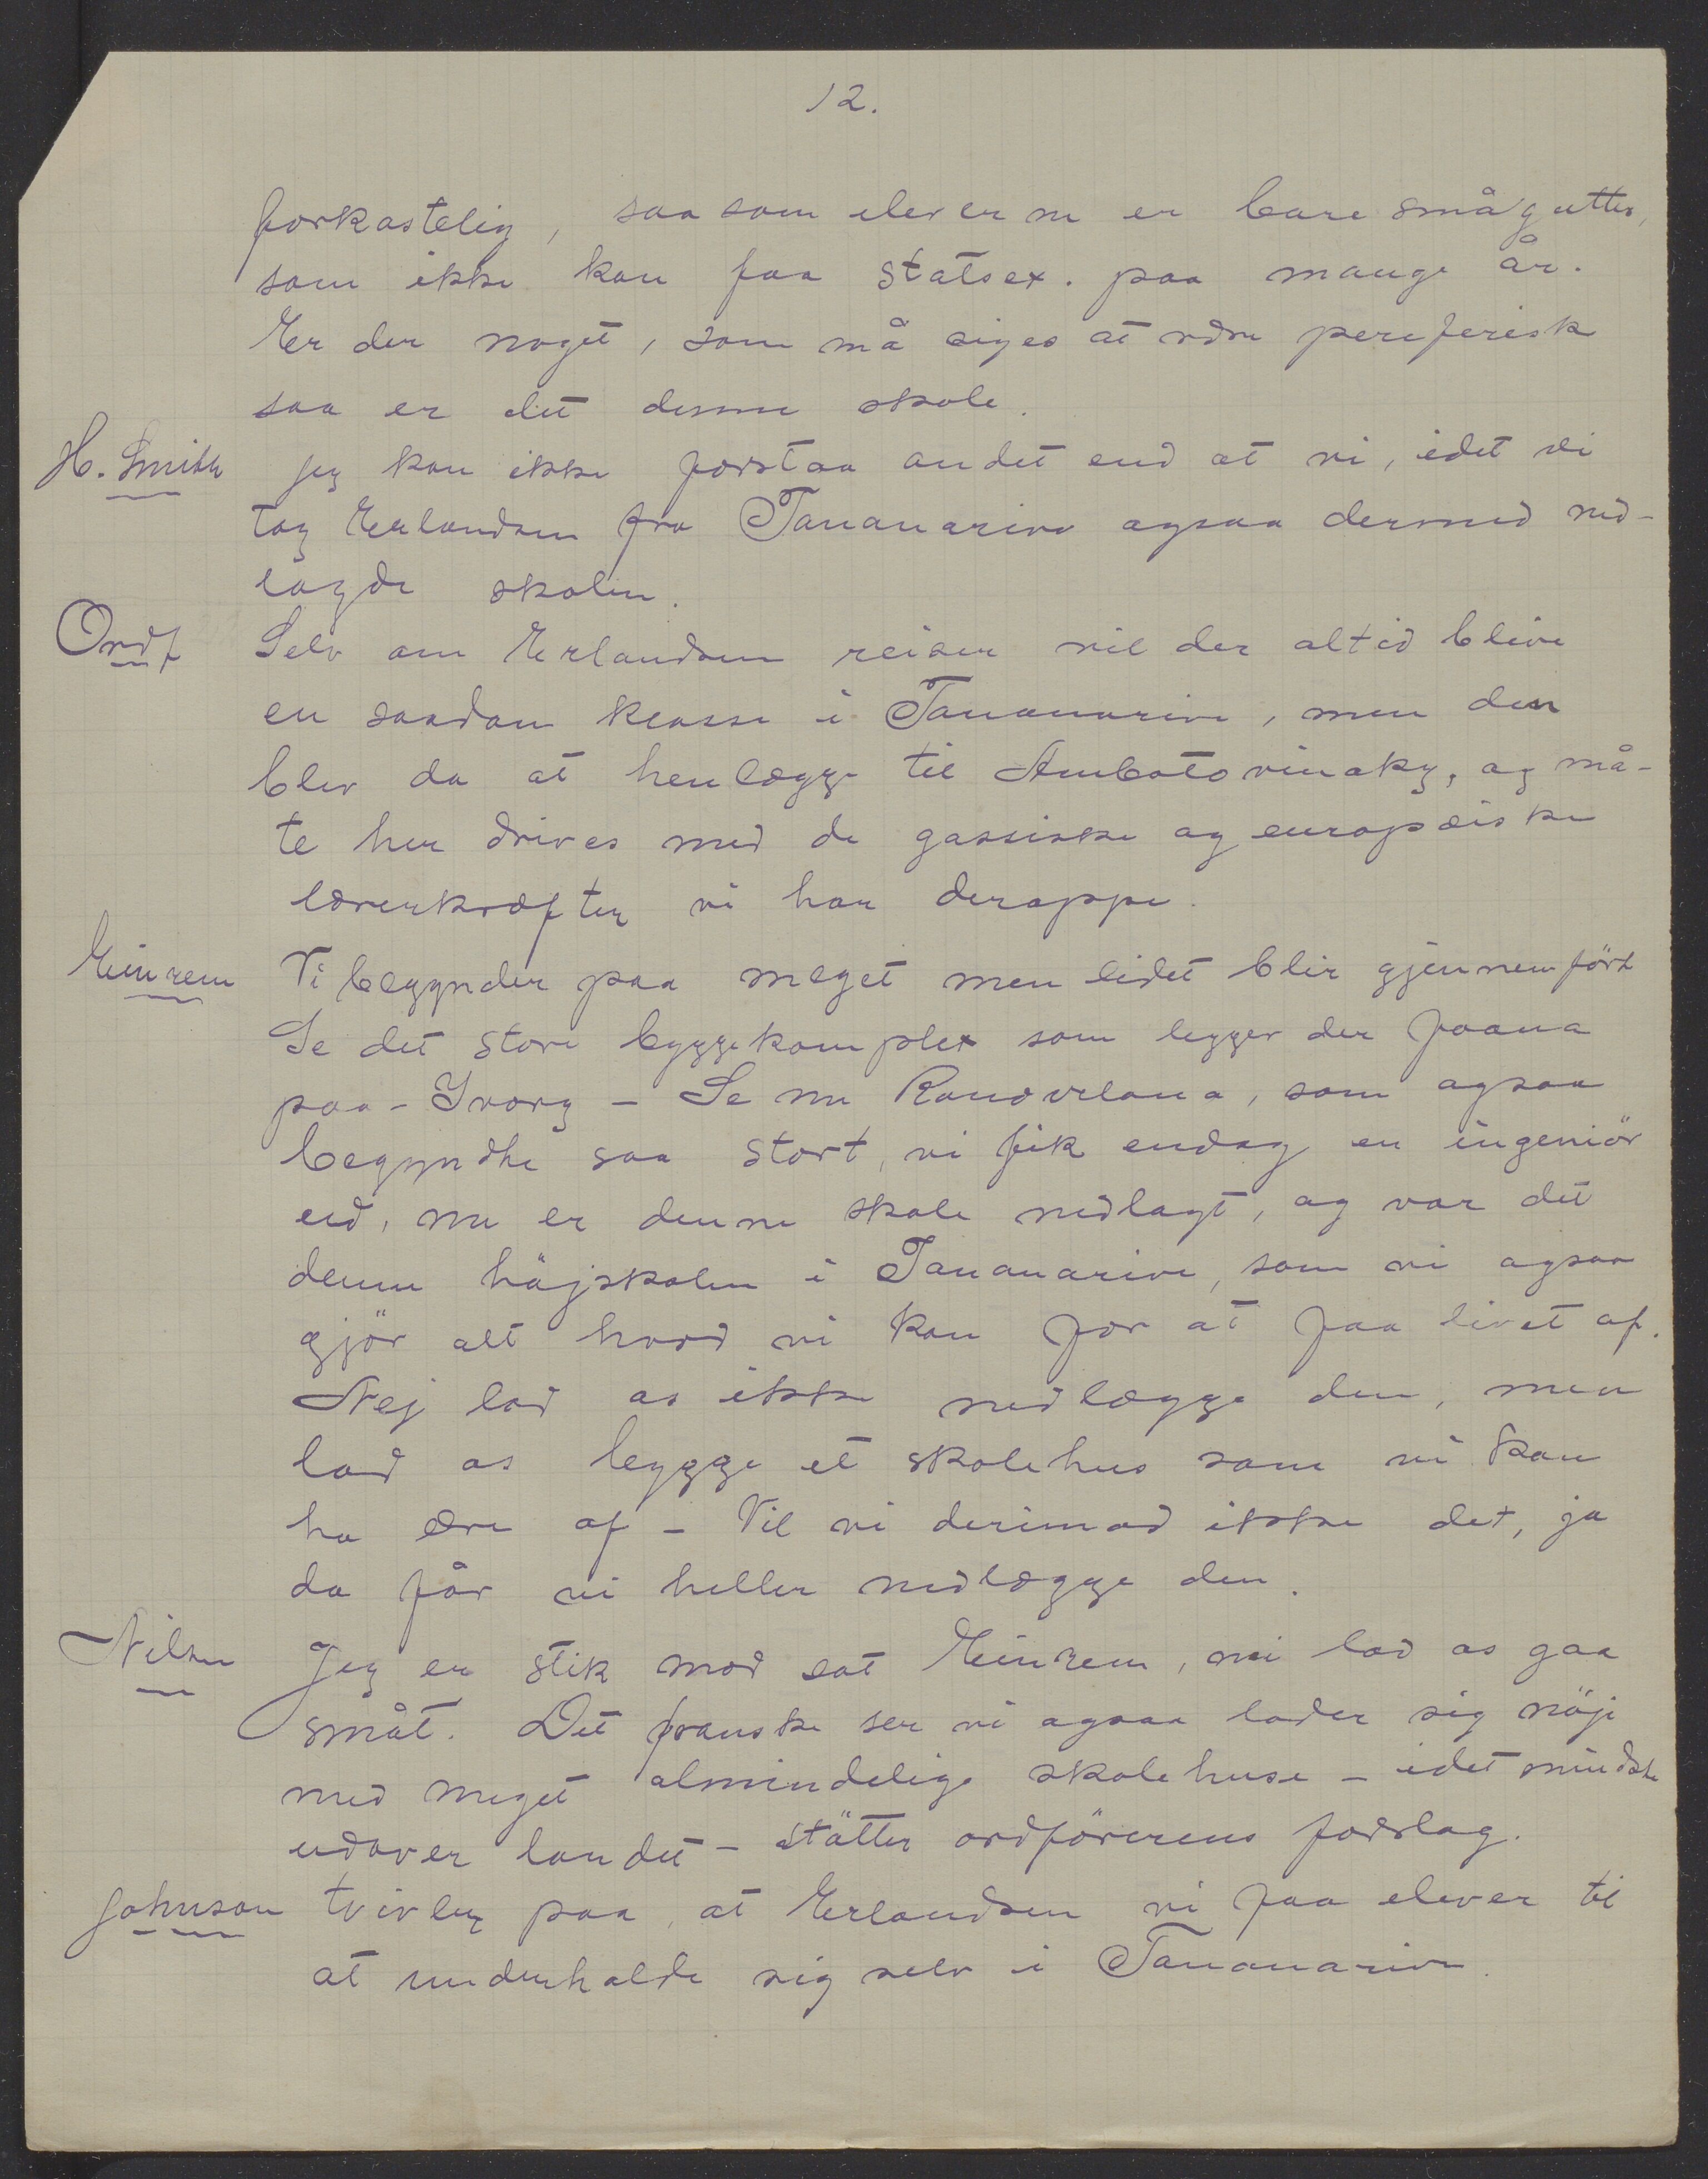 12.
forkastelig, saasom eleverne er bare smågutter,
som ikke kan faa statsex. paa mange år.
Er der noget, som må siges at være periferisk
saa er det denne skole.
H. Smith Jeg kan ikke forstaa andet end at vi, idet vi
tog Erlandsen fra Tananarivo ogsaa dermed ned-
lagde skolen.
Ordf Selv om Erlandsen reiser vil der altid blive
en saadan klasse i Tananarive, men den
blev da at henlægge til Ambatovinaky, og må-
te her drives med de gassiske og europæiske
lærerkræfter vi har deroppe.
Einrem Vi begynder paa meget men lidet blir gjennemført
Se det store byggekomplex som ligger der
paa - Ivory - Se nu Ranovelona, som ogsaa
begyndte saa stort, vi fik endog en ingeniör
ud, nu er denne skole nedlagt, og var det
denne höjskolen i Tananarive, som vi ogsaa
gjör alt hvad vi kan for at faa livet af.
Nej lad os ikke nedlægge den, men
lad os bygge et skolehus som vi kan
ha ære af - Vil vi derimod ikke det, ja
da får vi heller nedlægge den.
Nilsen Jeg er stik mod sat Einrem, lad os gaa
småt. Det franske ser vi ogsaa lader sig nöje
med meget almindelige skolehuse - idet mindste
udover landet - stötter ordförerens forslag.
Johnson tvivler paa, at Erlandsen vi faa elever til
at underholde sig selv i Tananarive.